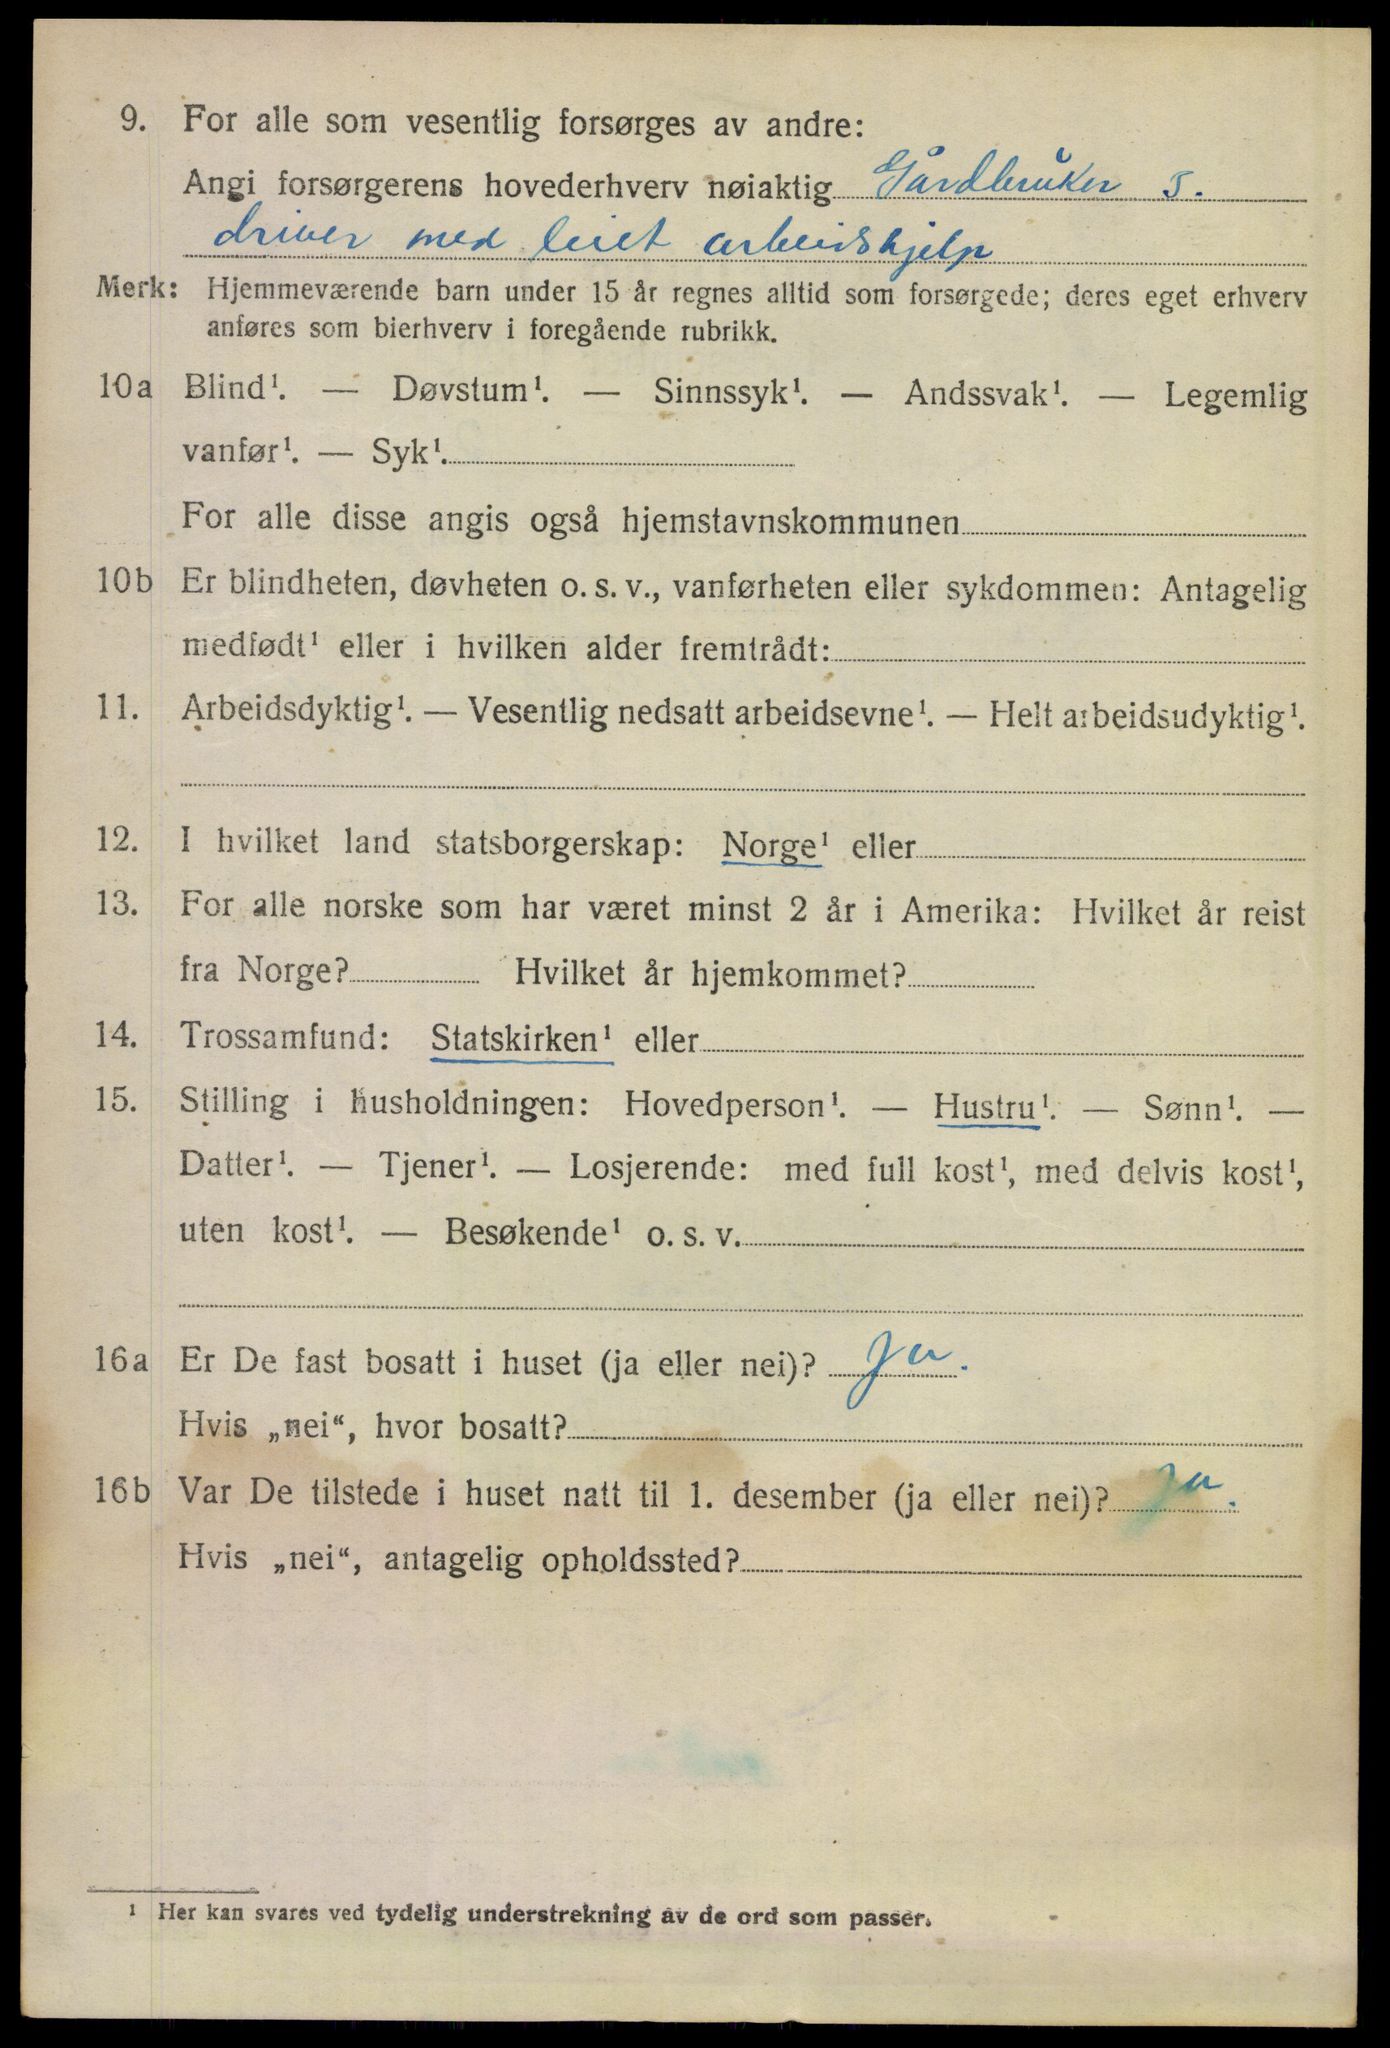 9. For alle som vesentlig forsørges av andre:
Angi forsørgerens hovederhverv nøiaktig Gårdbruker S.
driver med leiet arbeidshjelp
Merk: Hjemmeværende barn under 15 år regnes alltid som forsørgede; deres eget erhverv
anføres som bierhverv i foregående rubrikk.
10a Blind¹. — Døvstum¹. — Sinnssyk¹. — Andssvak¹. — Legemlig
vanfør¹. — Syk¹.
For alle disse angis også hjemstavnskommunen
10b Er blindheten, døvheten o. s. v., vanførheten eller sykdommen: Antagelig
medfødt¹ eller i hvilken alder fremtrådt:
11. Arbeidsdyktig¹. — Vesentlig nedsatt arbeidsevne¹. — Helt arbeidsudyktig¹.
12. I hvilket land statsborgerskap: Norge¹ eller
13. For alle norske som har været minst 2 år i Amerika: Hvilket år reist
fra Norge? Hvilket år hjemkommet?
14. Trossamfund: Statskirken¹ eller
15. Stilling i husholdningen: Hovedperson¹. — Hustru¹. — Sønn¹. —
Datter¹. — Tjener¹. — Losjerende: med full kost¹, med delvis kost¹,
uten kost¹. — Besøkende¹ o. s. v.
16a Er De fast bosatt i huset (ja eller nei)? Ja.
Hvis „nei“, hvor bosatt?
16b Var De tilstede i huset natt til 1. desember (ja eller nei)? Ja.
Hvis „nei“, antagelig opholdssted?
¹ Her kan svares ved tydelig understrekning av de ord som passer.